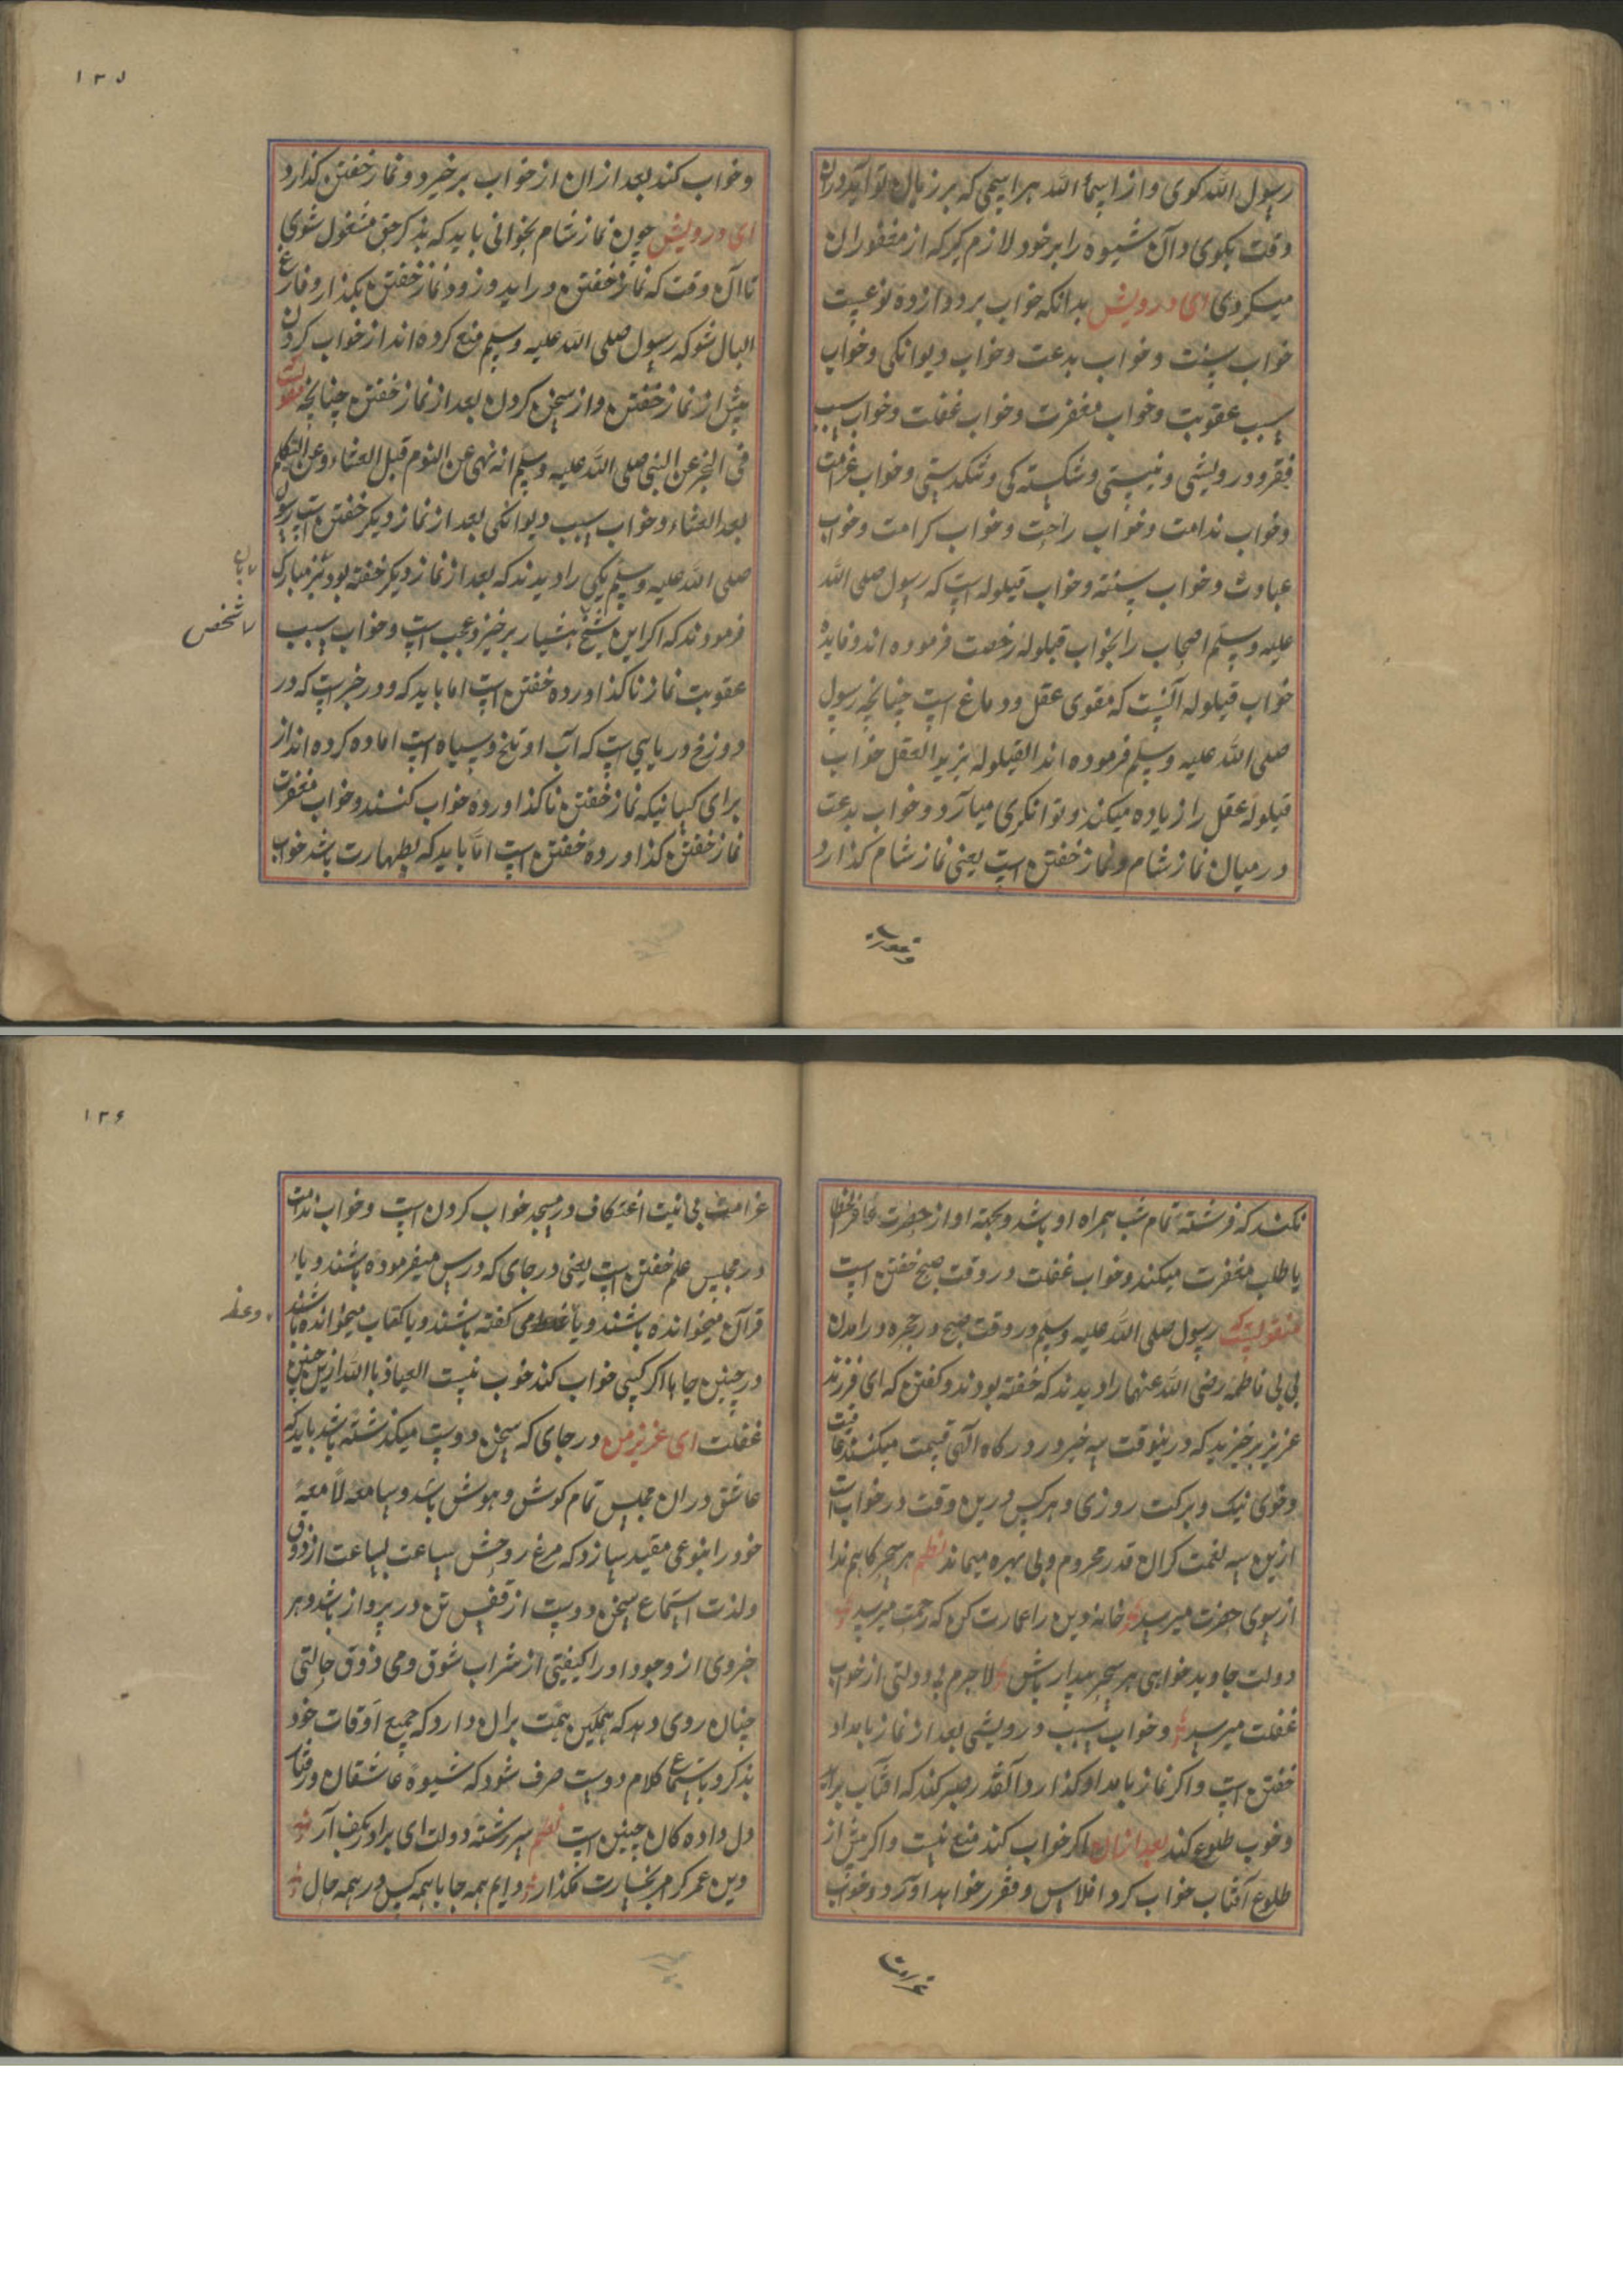 ۱۳۵
رسول الله کوی و از اسماء الله هر اسمی که بر زبان تو آید دران
وقت بکوی و آن شیوه را بر خود لازم کیر که از مغفوران
میکردی ای درویش بدانکه خواب بر دوازده نوعیست
خواب سنت و خواب بدعت و خواب دیوانکی و خواب
بسبب عقوبت و خواب مغفرت و خواب غفلت و خواب سبب
فقر و درویشی و نیستی و شکسته کی و تنکدستی و خواب غرامت
و خواب ندامت و خواب راحت و خواب کرامت و خواب
عبادت و خواب سنته و خواب قیلوله است که رسول صلی الله
علیه وسلم اصحاب را بخواب قیلوله رخصت فرموده اند و فایده
خواب قیلوله آنست که مقوی عقل و دماغ است چنانچه رسول
صلی الله علیه وسلم فرموده اند القیلولة یزید العقل خواب
قیلوله عقل را زیاده میکند و توانکری میآرد و خواب بدعت
در میان نماز شام و نماز خفتن است یعنی نماز شام کذارد
و خواب کند بعد ازان از خواب بر خیزد و نماز خفتن کذارد
ای درویش چون نماز شام بخوانی باید که بذکر حق مشغول شوی
تا آن وقت که نماز خفتن در اید و زود نماز خفتن بکذار و فارغ
البال شو که رسول صلی الله علیه وسلم منع کرده اند از خواب کردن
پیش از نماز خفتن و از سخن کردن بعد از نماز خفتن چنانچه منقولست
فی الخبر عن النبی صلی الله علیه وسلم انه نهی عن النوم قبل العشاء و عن التکلم
بعد العشاء و خواب سبب دیوانکی بعد از نماز دیکر خفتن است رسول
صلی الله علیه وسلم یکی را دیدند که بعد از نماز دیکر خفته بود مبارک
فرمودند که اکر این شیخ هشیار بر خیزد عجب است و خواب بسبب
شخص
عقوبت نماز ناکذاورده خفتن است اما باید که و در خبر است که در
دوزخ دریایی است که آب او تلخ و سیاه است اماده کرده اند از
برای کسانیکه نماز خفتن ناکذاورده خواب کنند و خواب مغفرت
نماز خفتن کذاورده خفتن است اما باید که بطهارت باشد خواب
۱۳۶
نکند که فرشته تمام شب همراه او باشد و بجهته او از حضرت
یا طلب مغفرت میکند و خواب غفلت در وقت صبح خفتن است
منقولست که رسول صلی الله علیه وسلم در وقت صبح در حجره در امدن
بی بی فاطمه رضی الله عنها را دیدند که خفته بودند و کفتن که ای فرزند
عزیز برخیزید که درینوقت سه خیر در درکاه الهی قسمت میکنند عافیت
و خوی نیک و برکت روزی و هر کس درین وقت در خواب است
ازین سه نعمت کران قدر محروم و بی بهره میماند نظم هر سحرکاهم ندا
از سوی حضرت میرسد خانه دین را عمارت کن که رحمت میرسد
دولت جاوید خواهی هر سحر بیدار باش لاجرم بی دولتی از خواب
غفلت میرسد و خواب سبب درویشی بعد از نماز بامداد
خفتن است و اکر نماز بامداد کذارد آنقدر صبر کند که افتاب براید
و خوب طلوع کند بعد ازان اکر خواب کند منع نیست و اکر پیش از
طلوع آفتاب خواب کرد افلاس و فقر خواهد اورد و خواب
غرامت
غرامت بی نیت اعتکاف در مسجد خواب کردن است و خواب ندامت
در مجلس علم خفتن است یعنی در جای که درس میفرموده باشند و یا
قرآن میخوانده باشند و یا غلط می کفته باشند و یا کتاب میخوانده باشند
وعظ
در چنین جاها اکر کسی خواب کند خوب نیست العیاذ بالله ازین چنین
غفلت ای عزیز من در جای که سخن دوست میکذشته باشد باید که
عاشق دران مجلس تمام کوش و هوش باشد و سامعه لامعه
خود را بنوعی مقید سازد که مرغ روحش ساعت بساعت از ذوق
و لذت استماع سخن دوست از قفس تن در پرواز باشد و هر
جزوی از وجود او را کیفیتی از شراب شوق و می ذوق حالتی
چنان روی دهد که همکین همت بران دارد که جمیع اوقات خود
بذکر و باستماع کلام دوست صرف شود که شیوه عاشقان و رفتار
دل داده کان چنین است نظم سر رشته دولت ای برادر بکف آر
وین عمر کرامی بخسارت مکذار دایم همه جا با همه کس در همه حال